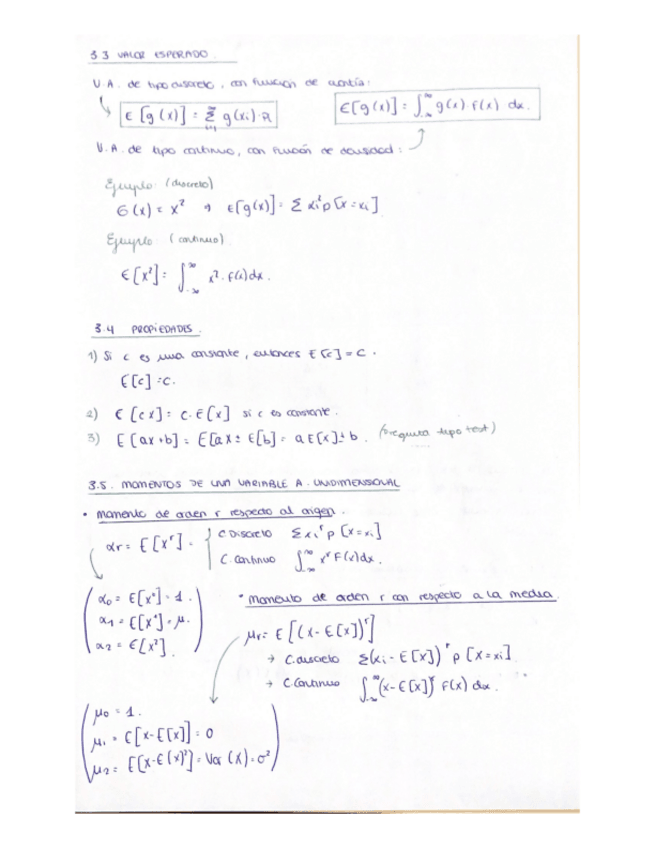 3.3 VALOR ESPERADO.
V.A. de tipo discreto, con función de cuantía:
E [g(x)] = ∑ g(xi)·Pi
E[g(x)] = ∫_{-∞}^{∞} g(x) f(x) dx.
V.A. de tipo continuo, con función de densidad:
Ejemplo: (discreto)
G(x) = x² → E[g(x)] = ∑ xi² p[x = xi]
Ejemplo: (continuo)
E[x²] = ∫_{-∞}^{∞} x² · f(x) dx.
3.4 PROPIEDADES.
1) Si c es una constante, entonces E[c] = c.
E[c] = c.
2) E [cx] = c·E[x] si c es constante.
3) E [ax+b] = E[ax ± E[b] = a E[x] ± b. (Pregunta tipo test)
3.5. MOMENTOS DE UNA VARIABLE A. UNIDIMENSIONAL
• Momento de orden r respecto al origen.
αr = E[x^r]. C.Discreto ∑ xi^r p [x = xi]
C. Continuo ∫_{-∞}^{∞} x^r f(x) dx.
α0 = E[x⁰] = 1.
α1 = E[x¹] = μ.
α2 = E[x²].
• Momento de orden r con respecto a la media.
μr = E [(x - E[x])^r]
→ C.discreto ∑(xi - E[x])^r p [x = xi]
→ C.Continuo ∫_{-∞}^{∞} (x - E[x])^r f(x) dx.
μ0 = 1.
μ1 = E[x - E[x]] = 0
μ2 = E[x - E(x)²] = Var (x) = σ²